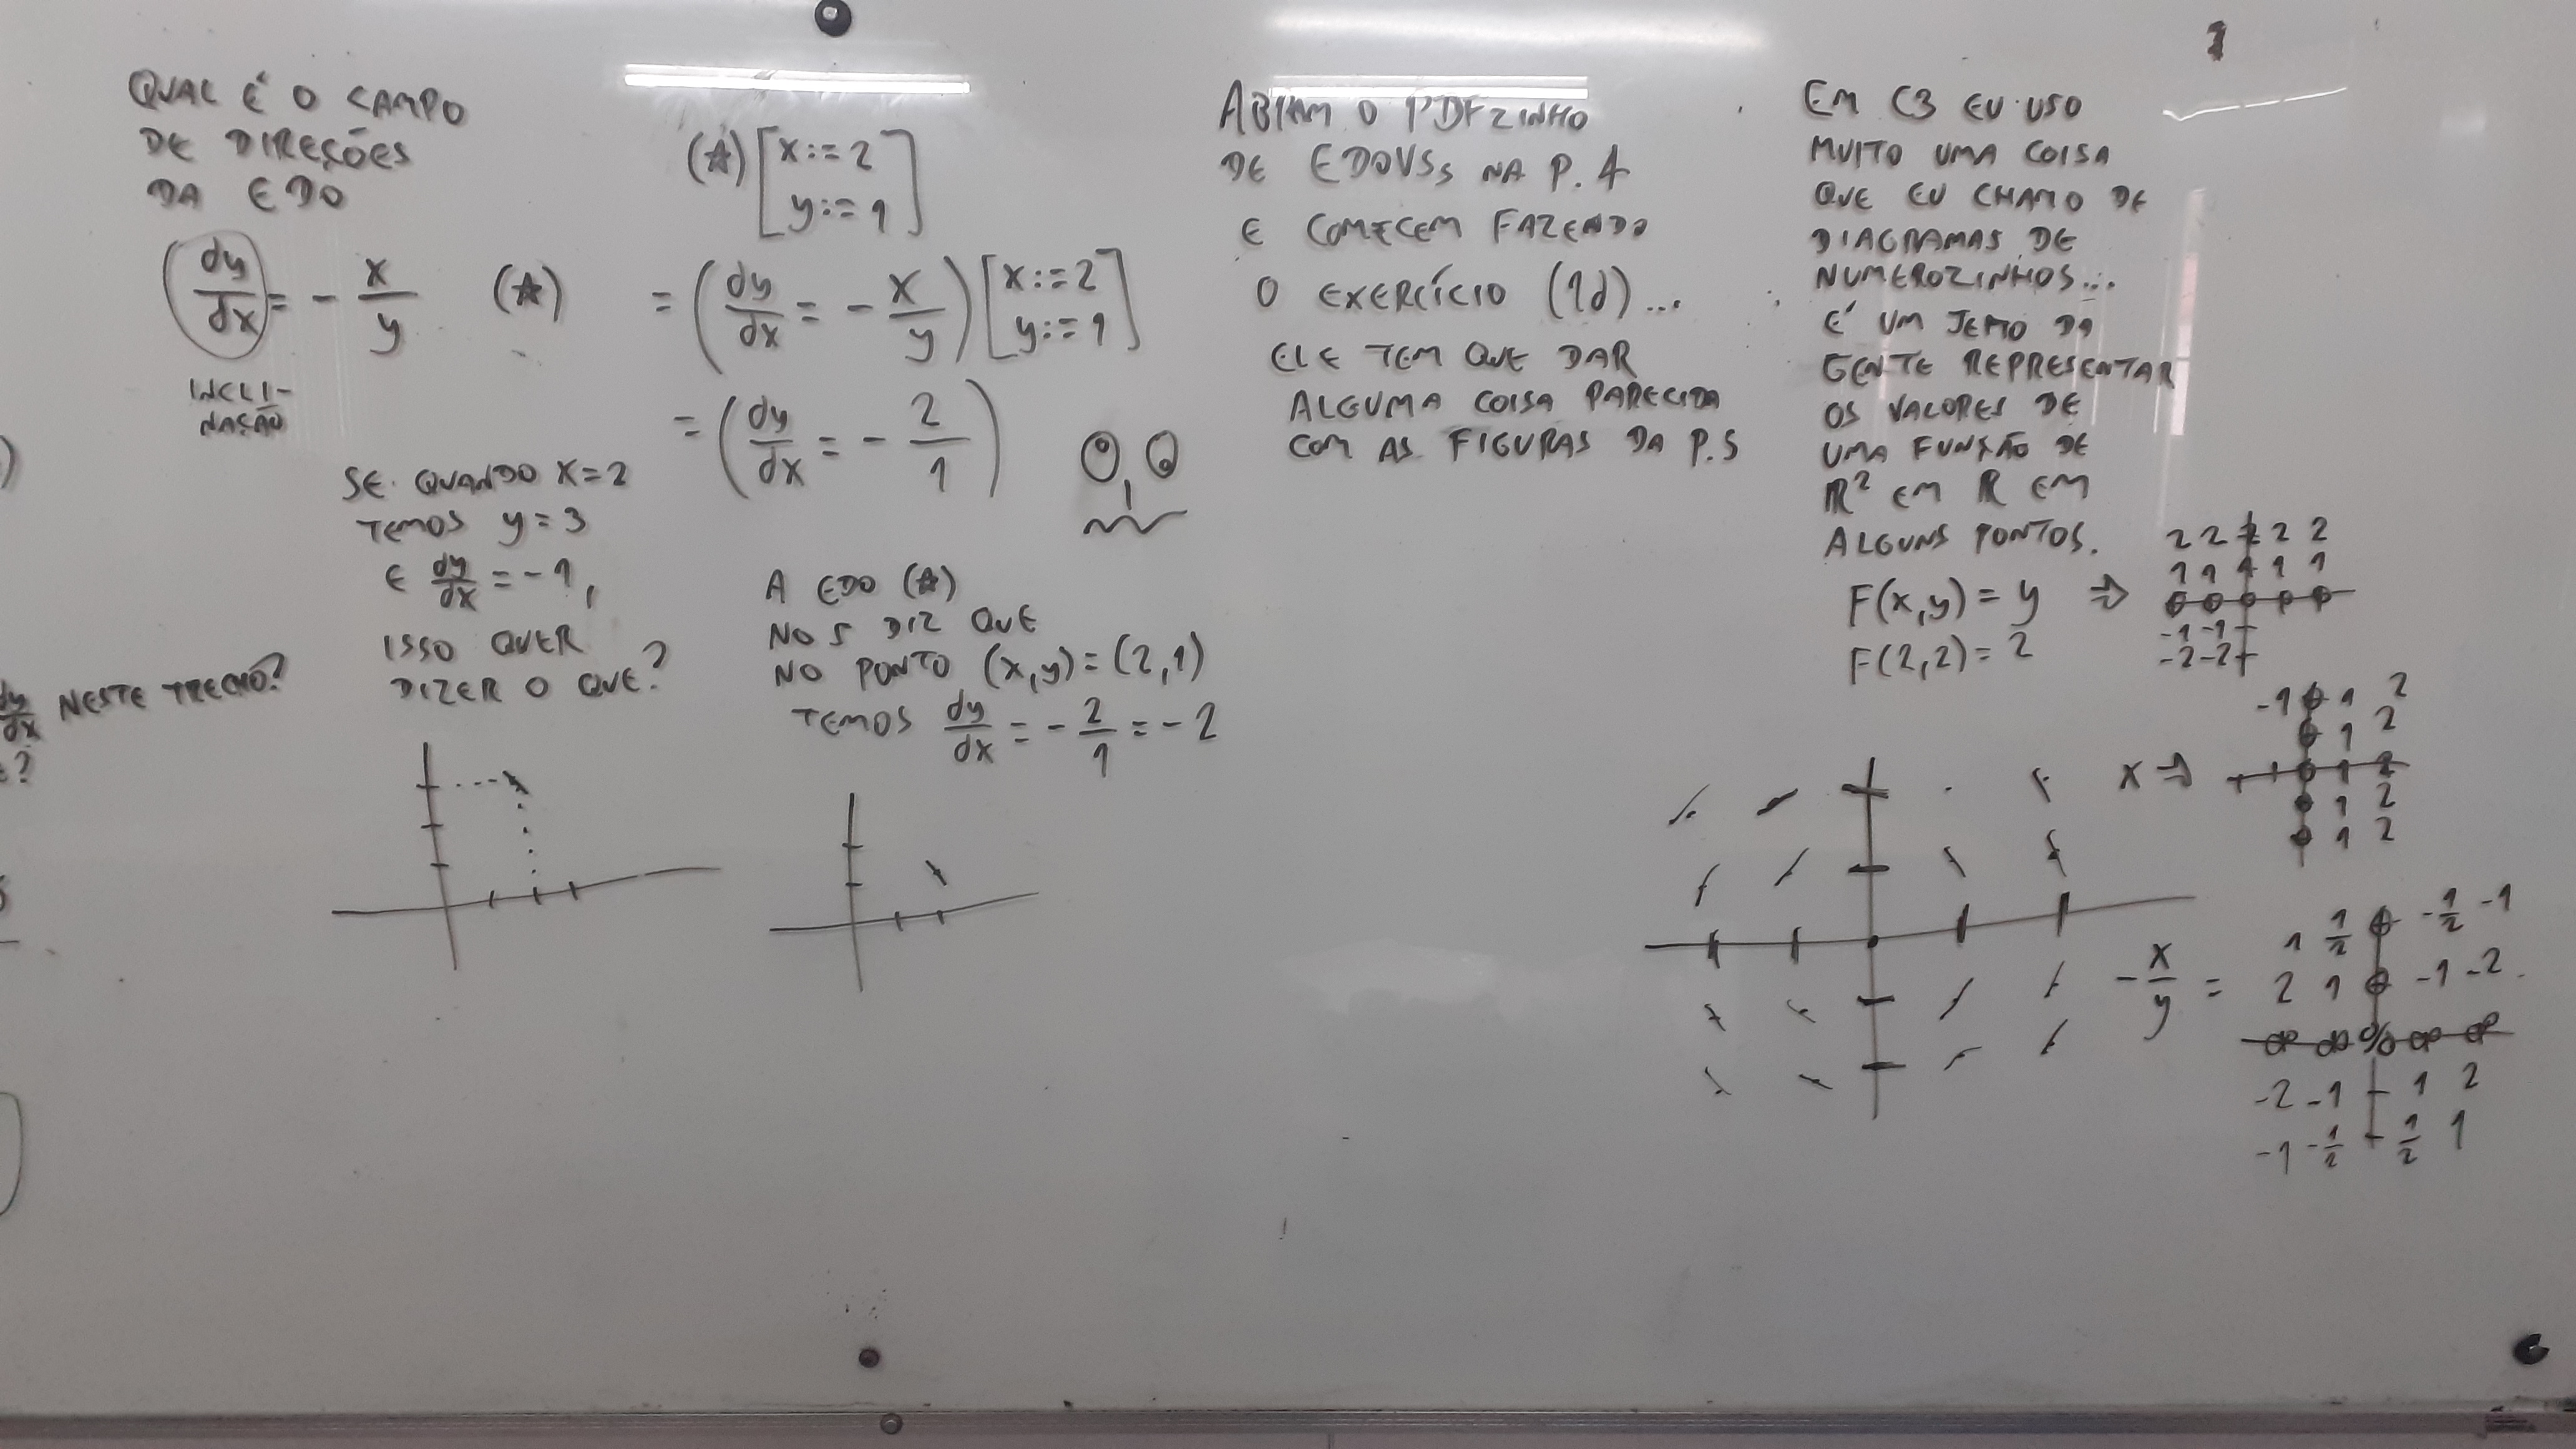 QUAL É O CAMPO
DE DIREÇÕES
DA EDO
dy/dx = - x/y (★)
INCLI-
NAÇÃO
SE QUANDO x=2
TEMOS y=3
E dy/dx = -1,
ISSO QUER
DIZER O QUE?
dy/dx NESTE TRECHO?
?
(★) [x:=2
y:=1]
= (dy/dx = - x/y) [x:=2
y:=1]
= (dy/dx = - 2/1)
A EDO (★)
NOS DIZ QUE
NO PONTO (x,y)=(2,1)
TEMOS dy/dx = - 2/1 = -2
ABRAM O PDFZINHO
DE EDOVSs NA P. 4
E COMECEM FAZENDO
O EXERCÍCIO (1d)...
ELE TEM QUE DAR
ALGUMA COISA PARECIDA
COM AS FIGURAS DA P.5
EM C3 EU USO
MUITO UMA COISA
QUE EU CHAMO DE
DIAGRAMAS DE
NUMEROZINHOS...
É UM JEITO DA
GENTE REPRESENTAR
OS VALORES DE
UMA FUNÇÃO DE
ℝ² EM ℝ EM
ALGUNS PONTOS.
F(x,y) = y ⇒
F(2,2) = 2
2 2 2 2 2
1 1 1 1 1
0 0 0 0 0
-1 -1
-2 -2
x ⇒
-1 0 1 2
0 1 2
0 1 2
0 1 2
0 1 2
- x/y =
1 1/2 0 -1/2 -1
2 1 0 -1 -2
∞ ∞ % ∞ ∞
-2 -1 1 2
-1 -1/2 1/2 1